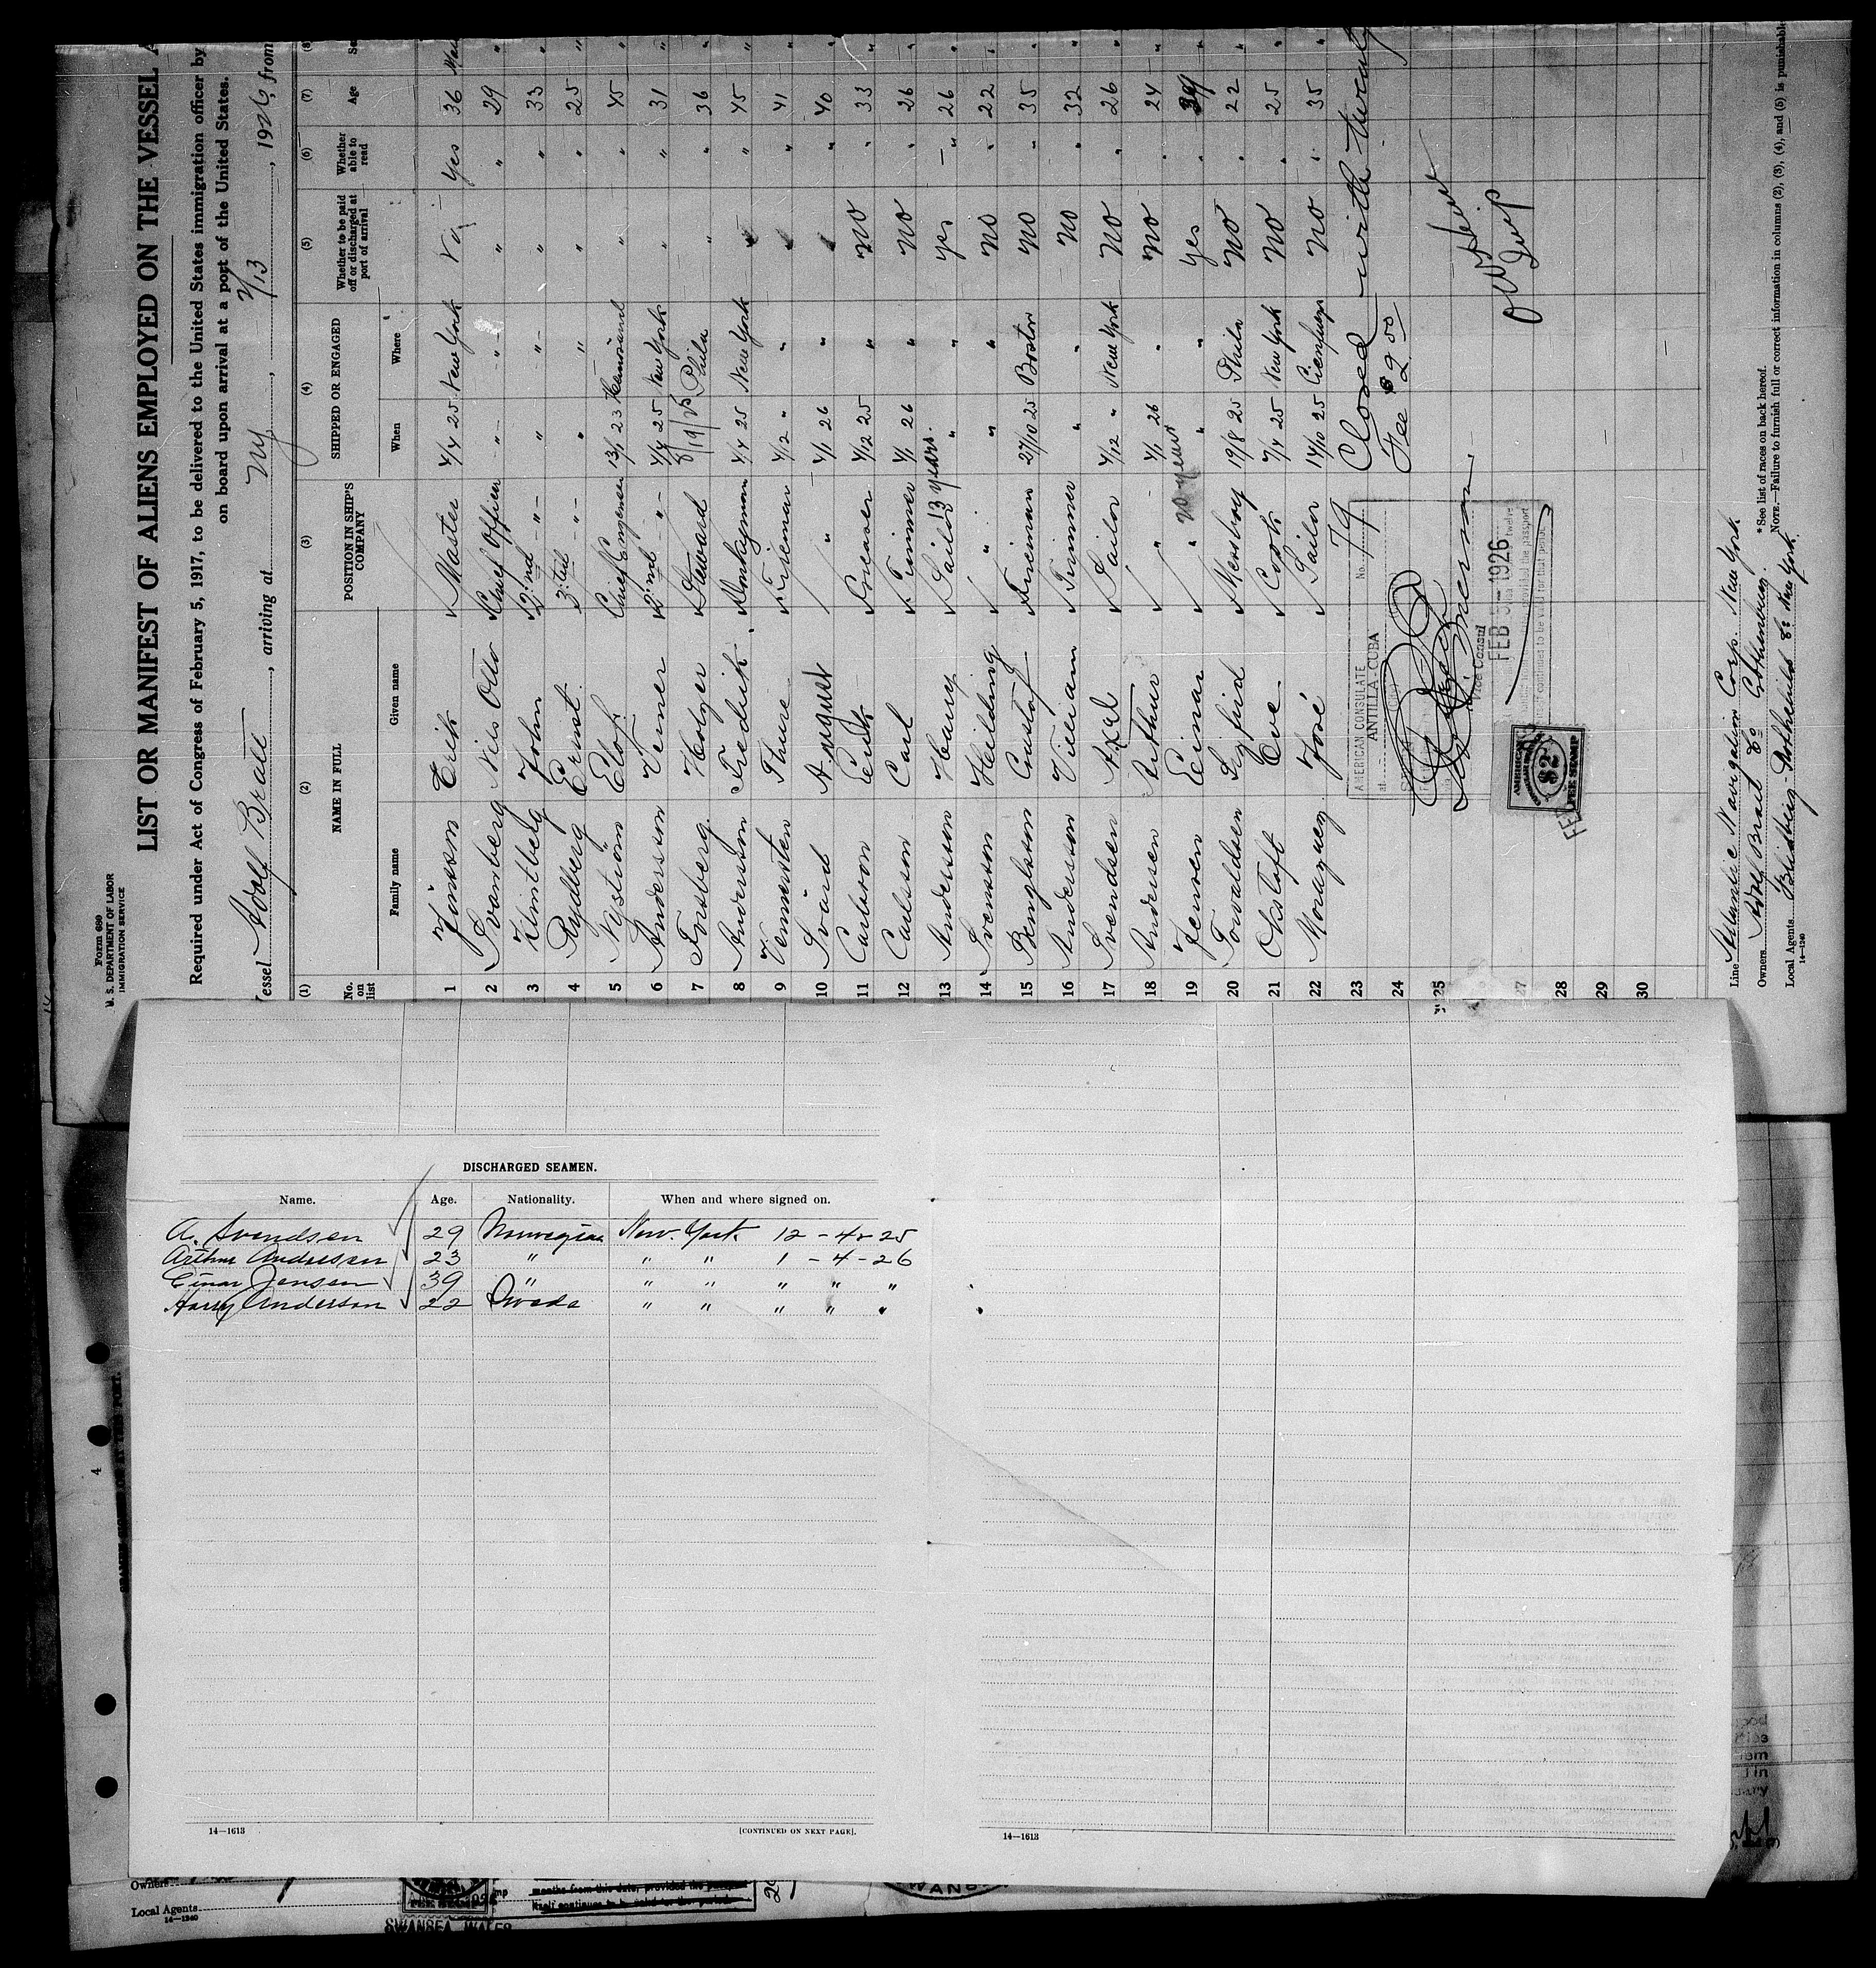 Form 689
U. S. DEPARTMENT OF LABOR
IMMIGRATION SERVICE
LIST OR MANIFEST OF ALIENS EMPLOYED ON THE VESSEL A
Required under Act of Congress of February 5, 1917, to be delivered to the United States immigration officer by
on board upon arrival at a port of the United States.
essel Adolf Bratt, arriving at NY, 2/13, 1926, from
(1) (2) (3) (4) (5) (6) (7) (8)
No. on list NAME IN FULL POSITION IN SHIP'S COMPANY SHIPPED OR ENGAGED Whether to be paid off or discharged at port of arrival Whether able to read Age Se
Family name Given name When Where
1 Jönsson Erik Master 4/4 25 New York Yes 36
2 Svanberg Nils Otto Chief Officer " " " " 29 "
3 Holmtberg John 2:nd " " " " " 33 "
4 Rydberg Ernst 3:tid " " " " " 25 "
5 Nyström Elof Chief Engeneer 13/1 23 " " 45 "
6 Andersson Verner 2:nd " 4/4 25 New York " " 31 "
7 Forsberg Holger Steward 8/19/25 Phila " " 36 "
8 Andersson Fredrik Donkeyman 4/4 25 New York " " 45 "
9 Vennersten Thure Fireman 4/12 " " " " 41 "
10 Svärd August " 4/1 26 " " " 40 "
11 Carlsson Erik Greaser 4/12 25 " no " 33 "
12 Carlsson Carl Trimmer 4/1 26 " no " 26 "
13 Andersson Harry Sailor 13 years. " " yes " 26 "
14 Svensson Heilding " " " no " 22 "
15 Bengtsson Gustaf Fireman 27/10 25 Boston no " 35 "
16 Andersson Villiam Trimmer " " no " 32 "
17 Svendsen Axel Sailor 4/12 " New York no " 26 "
18 Andersen Arthur " 4/1 26 " no " 24 "
19 Jensen Einar " 20 years " " yes " 39 "
20 Torvaldsen Sigfrid Messboy 19/8 25 Phila no " 22 "
21 Ove Cook 7/4 25 New York no " 25 "
22 José Sailor 14/10 25 Cienfuegos no " 35 "
23 Closed with twenty
24 Fee $2.00
25
27
28
29
30
AMERICAN CONSULATE
at ANTILLA CUBA
No. 79
Vice Consul
FEB 5 - 1926
AMERICAN
$2
FEE STAMP
Line Atlantic Navigation Corp. New York
Owners Adolf Bratt & Co Gothenburg.
Local Agents Rothschild & Co New York
14-1240
*See list of races on back hereof.
NOTE.—Failure to furnish full or correct information in columns (2), (3), (4), and (5) is punishable
DISCHARGED SEAMEN.
Name. Age. Nationality. When and where signed on.
A. Svendsen 29 Norwegian New York 12 - 4 - 25
Arthur Andersen 23 " " " 1 - 4 - 26
Einar Jensen 39 " " " " " "
Harry Anderson 22 Swede " " " " "
14—1613
[CONTINUED ON NEXT PAGE].
14—1613
4
Owners
Local Agents
14—1240
FEE STAMP
months from this date, provided the passport
itself continues to be valid for the period
SWANSEA, WALES